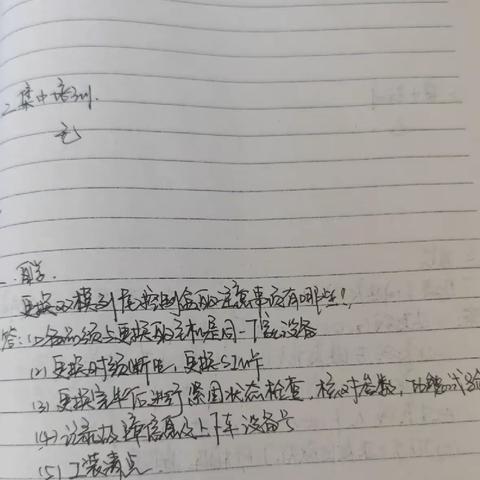 二.集中培训.
无
一.自学.
更换双模列尾控制盒的注意事项有哪些?
答:(1)备品须与更换的主机是同一厂家设备
(2)更换时须断电,更换SIM卡
(3)更换完毕后进行紧固状态检查,核对参数,功能试验
(4)记录故障信息及上下车设备号
(5)工装清点